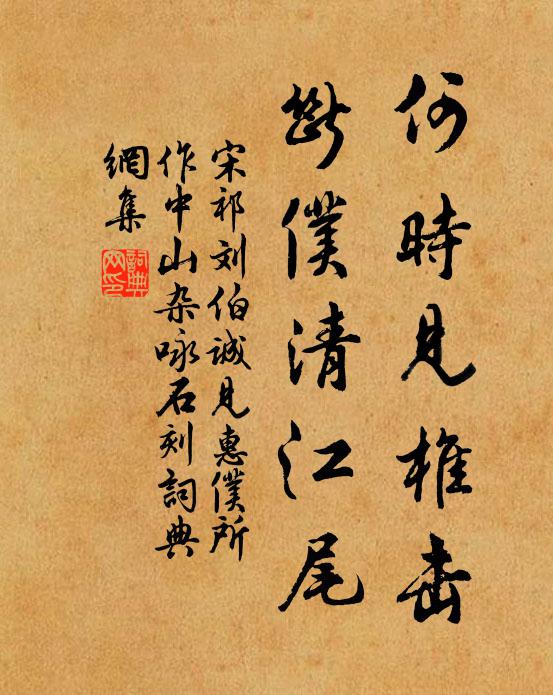 何時見椎击
毙僕清江尾
宋祁刘伯誠見惠僕所
作中山杂咏石刻詞典
網集
詞典
网印